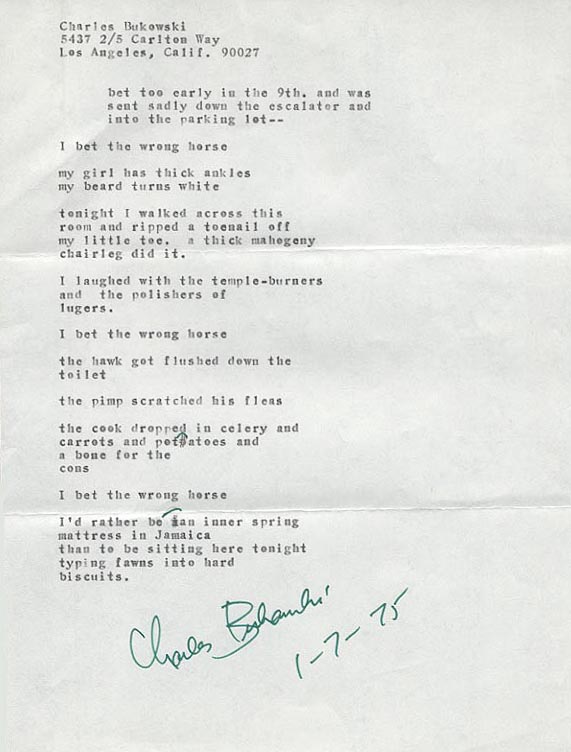 Charles Bukowski
5437 2/5 Carlton Way
Los Angeles, Calif. 90027
bet too early in the 9th. and was
sent sadly down the escalater and
into the parking lot--
I bet the wrong horse
my girl has thick ankles
my beard turns white
tonight I walked across this
room and ripped a toenail off
my little toe. a thick mahogeny
chairleg did it.
I laughed with the temple-burners
and the polishers of
lugers.
I bet the wrong horse
the hawk got flushed down the
toilet
the pimp scratched his fleas
the cook dropped in celery and
carrots and potatoes and
a bone for the
cons
I bet the wrong horse
I'd rather be an inner spring
mattress in Jamaica
than to be sitting here tonight
typing fawns into hard
biscuits.
Charles Bukowski
1-7-75